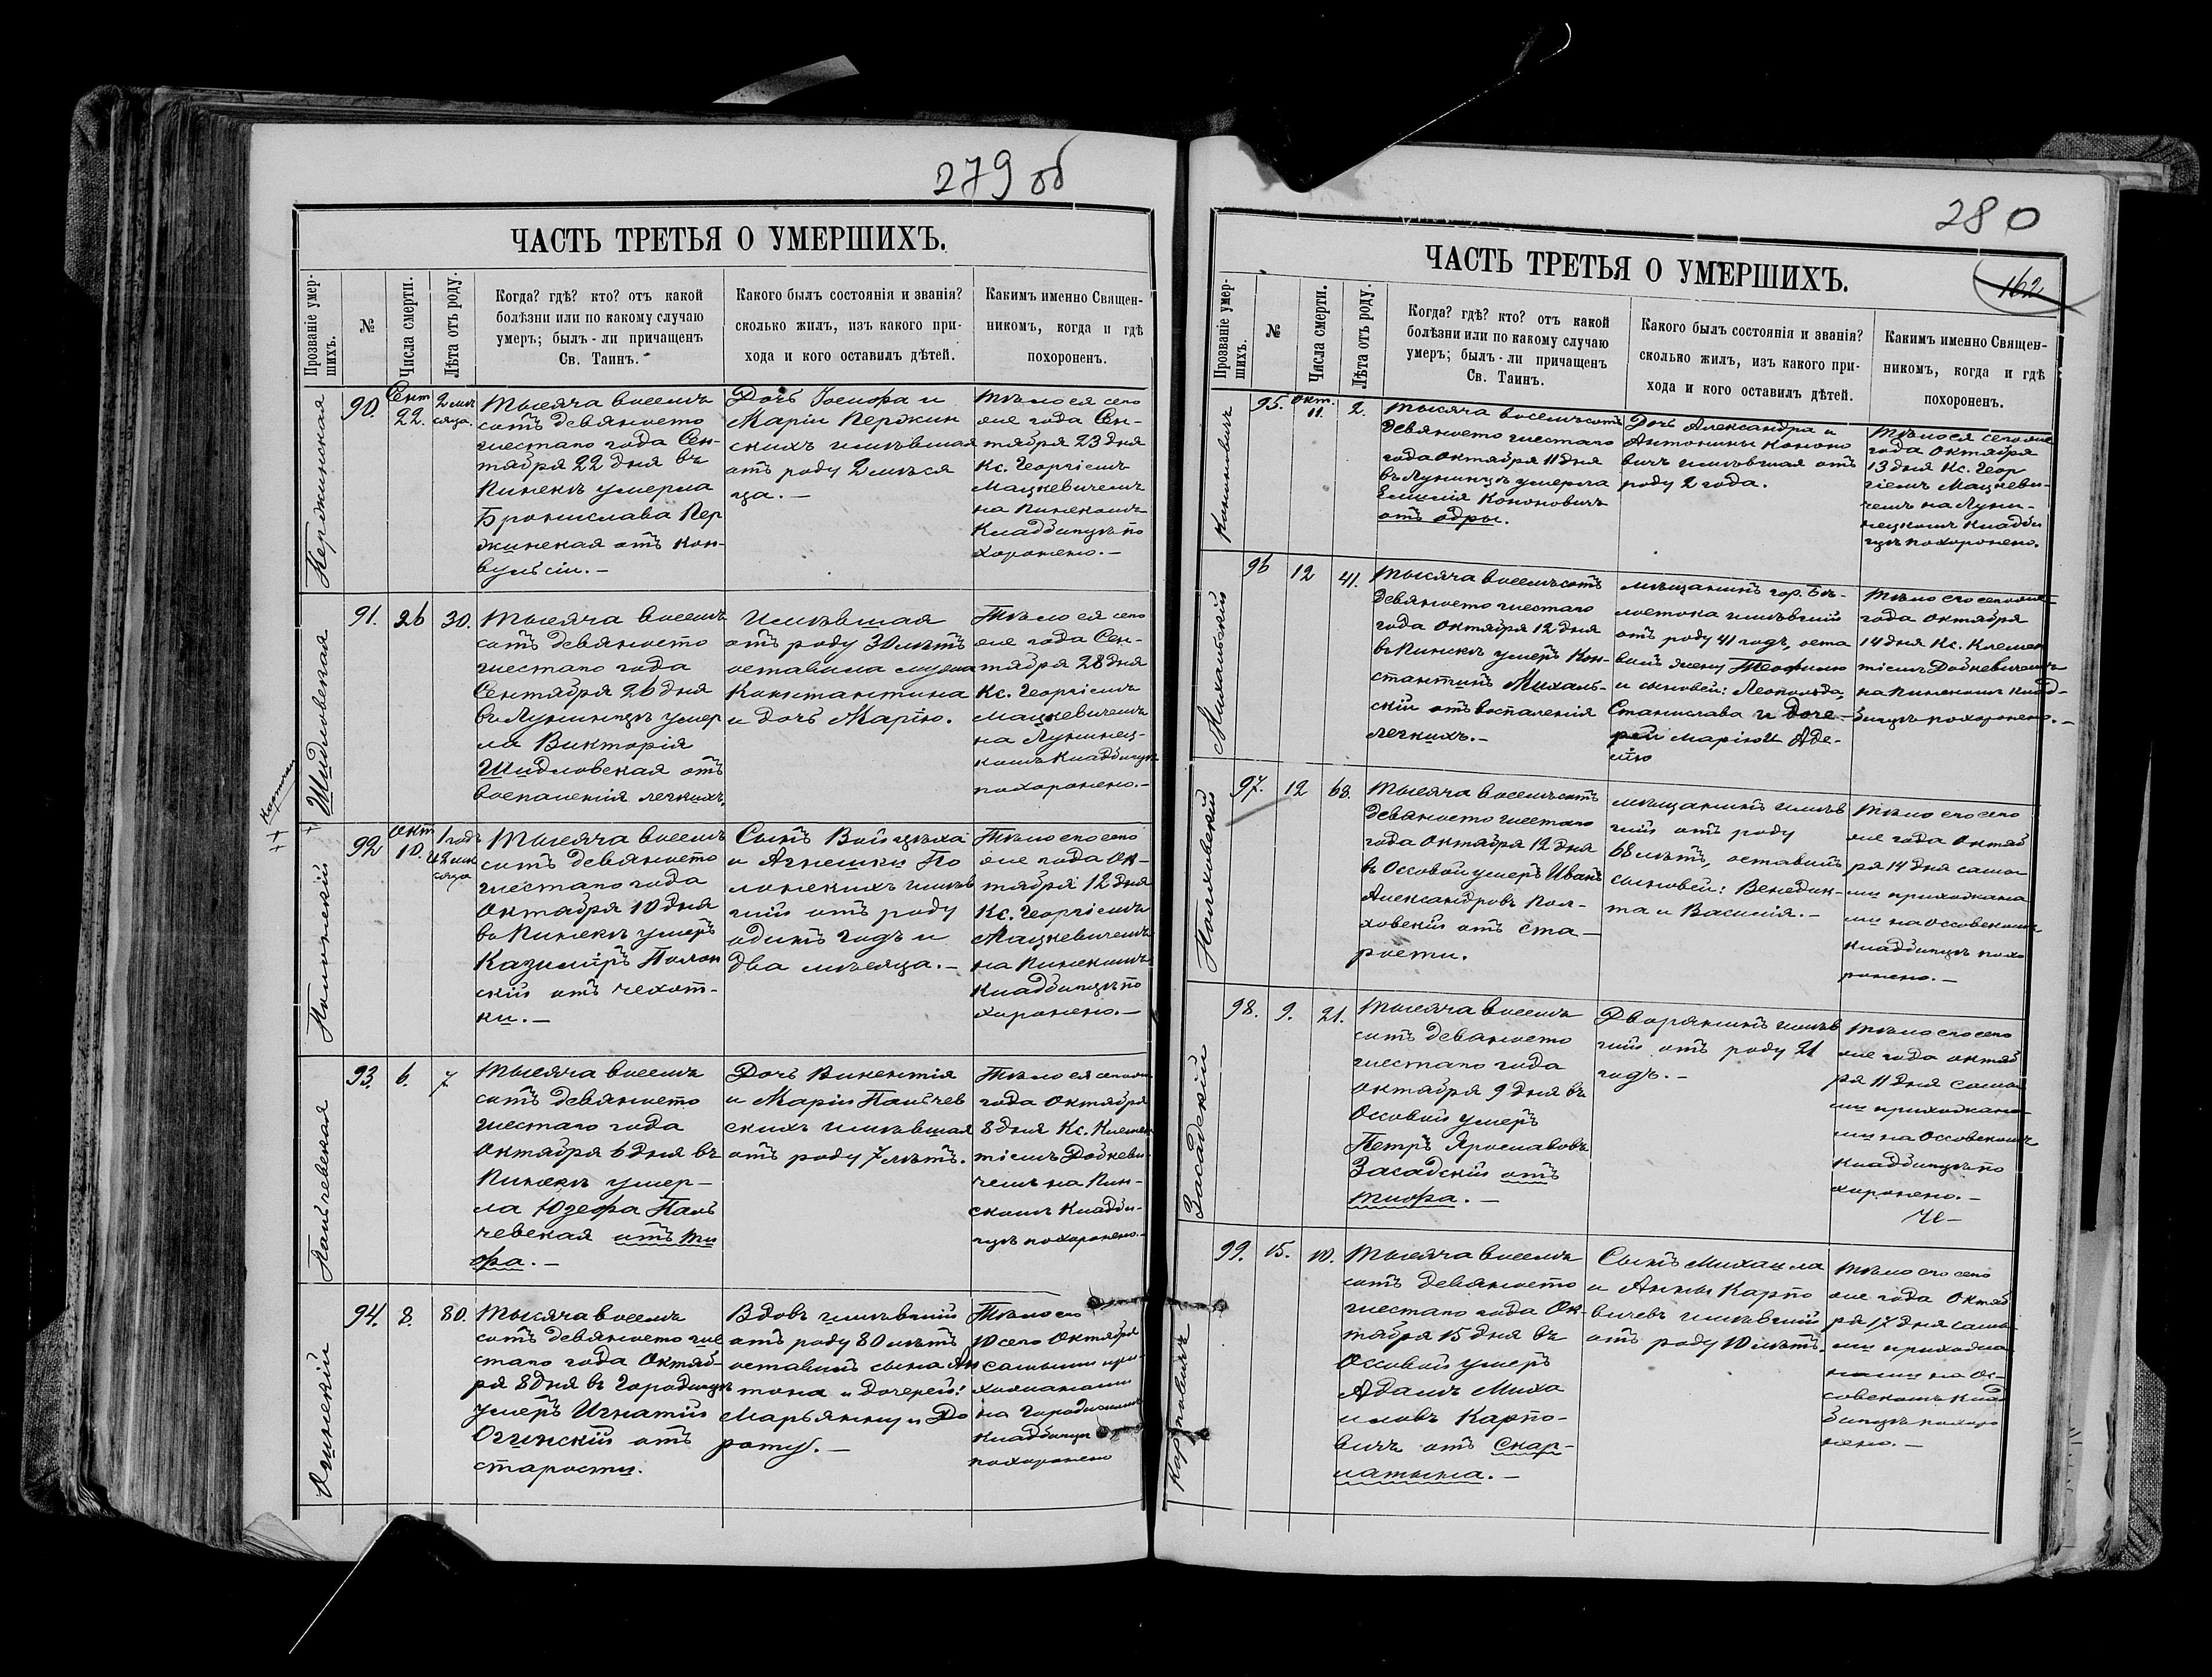 279 об
ЧАСТЬ ТРЕТЬЯ О УМЕРШИХЪ.
Прозваніе умер-
шихъ.
№
Числа смерти.
Лѣта отъ роду.
Когда? гдѣ? кто? отъ какой
болѣзни или по какому случаю
умеръ; былъ-ли причащенъ
Св. Таинъ.
Какого былъ состоянія и званія?
сколько жилъ, изъ какого при-
хода и кого оставилъ дѣтей.
Какимъ именно Священ-
никомъ, когда и гдѣ
похороненъ.
Пержинская
90.
Сент
22.
2 мѣ
сяца.
Тысяча восемь
сотъ девяносто
шестаго года Сен-
тября 22 дня въ
Пинскѣ умерла
Бронислава Пер
жинская отъ кон-
вульсіи. —
Дочь Іосифа и
Маріи Пержин
скихъ имѣвшая
отъ роду 2 мѣся
ца. —
Тѣло ея сего
же года Сен-
тября 23 дня
Кс. Георгіемъ
Мацкевичемъ
на Пинскомъ
Кладбищѣ по
хоронено. —
Шидловская
91.
26
30.
Тысяча восемь
сотъ девяносто
шестаго года
Сентября 26 дня
въ Лунинцѣ умер
ла Викторія
Шидловская отъ
воспаленія легкихъ.
Имѣвшая
отъ роду 30 лѣтъ
оставила мужа
Константина
и дочь Марію.
Тѣло ея сего
же года Сен-
тября 28 дня
Кс. Георгіемъ
Мацкевичемъ
на Лунинец-
комъ Кладбищѣ
похоронено. —
Полонскій
92
Окт
10.
1 годъ
и 2 мѣ
сяца
Тысяча восемь
сотъ девяносто
шестаго года
Октября 10 дня
въ Пинскѣ умеръ
Казиміръ Полон
скій отъ чехот-
ки. —
Сынъ Войцѣха
и Агнешки По
лонскихъ имѣв
шій отъ роду
одинъ годъ и
два мѣсяца. —
Тѣло его сего
же года Ок-
тября 12 дня
Кс. Георгіемъ
Мацкевичемъ
на Пинскомъ
Кладбищѣ по
хоронено. —
Пальчевская
93.
6.
7
Тысяча восемь
сотъ девяносто
шестаго года
Октября 6 дня въ
Пинскѣ умер-
ла Юзефа Паль
чевская отъ ти
фа. —
Дочь Викентія
и Маріи Пальчев
скихъ имѣвшая
отъ роду 7 лѣтъ.
Тѣло ея сего же
года Октября
8 дня Кс. Клемен
тіемъ Дойкеви
чемъ на Пин-
скомъ Кладби-
щѣ похоронено. —
Огинскій
94.
8.
80.
Тысяча восемь
сотъ девяносто ше
стаго года Октяб-
ря 8 дня въ Городищѣ
умеръ Игнатій
Огинскій отъ
старости.
Вдовъ имѣвшій
отъ роду 80 лѣтъ
оставилъ сына Ан
тона и дочерей:
Марьянну и До
роту. —
Тѣло его
10 сего Октября
самыми при-
хожанами
на Городискомъ
Кладбищѣ
похоронено
280
162
ЧАСТЬ ТРЕТЬЯ О УМЕРШИХЪ.
Прозваніе умер-
шихъ.
№
Числа смерти.
Лѣта отъ роду.
Когда? гдѣ? кто? отъ какой
болѣзни или по какому случаю
умеръ; былъ-ли причащенъ
Св. Таинъ.
Какого былъ состоянія и званія?
сколько жилъ, изъ какого при-
хода и кого оставилъ дѣтей.
Какимъ именно Священ-
никомъ, когда и гдѣ
похороненъ.
Кононовичъ
95.
Окт.
11.
2.
Тысяча восемьсотъ
девяносто шестаго
года Октября 11 дня
въ Лунинцѣ умерла
Емилія Кононовичъ
отъ одры.
Дочь Александра и
Антонины Конono
вичъ имѣвшая отъ
роду 2 года.
Тѣло ея сего же
года Октября
13 дня Кс. Геор
гіемъ Мацкеви-
чемъ на Луни-
нецкомъ Кладби
щѣ похоронено.
Михальскій
96
12
41.
Тысяча восемьсотъ
девяносто шестаго
года Октября 12 дня
въ Пинскѣ умеръ Кон-
стантинъ Михаль-
скій отъ воспаленія
легкихъ. —
мѣщанинъ гор. Бѣ-
лостока имѣвшій
отъ роду 41 годъ, оста
вилъ жену Теофилю
и сыновей: Леопольда,
Станислава и доче-
рей Марію и Аде-
лію
Тѣло его сего же
года Октября
14 дня Кс. Клемен
тіемъ Дойкевичемъ
на Пинскомъ Клад-
бищѣ похоронено. —
Полховскій
97.
12
68.
Тысяча восемьсотъ
девяносто шестаго
года Октября 12 дня
въ Оссовой умеръ Иванъ
Александровъ Пол-
ховскій отъ ста-
рости.
мѣщанинъ имѣв
шій отъ роду
68 лѣтъ, оставилъ
сыновей: Бенедик-
та и Василія. —
Тѣло его сего
же года Октяб
ря 14 дня самы
ми прихожана
ми на Оссовскомъ
Кладбищѣ похо
ронено. —
Засадскій
98.
9.
21.
Тысяча восемь
сотъ девяносто
шестаго года
Октября 9 дня въ
Оссовой умеръ
Петръ Ярославовъ
Засадскій отъ
тифа. —
Дворянинъ имѣв
шій отъ роду 21
годъ. —
Тѣло его сего
же года октяб
ря 11 дня самы
ми прихожана-
ми на Оссовскомъ
Кладбищѣ по
хоронено. —
Карповичъ
99.
15.
10.
Тысяча восемь
сотъ девяносто
шестаго года Ок-
тября 15 дня въ
Оссовой умеръ
Адамъ Миха
иловъ Карпо-
вичъ отъ Скар-
латына. —
Сынъ Михаила
и Анны Карпо
вичевъ имѣвшій
отъ роду 10 лѣтъ.
Тѣло его сего
же года Октяб
ря 17 дня самы-
ми прихожа-
нами на Ос-
совскомъ Клад
бищѣ похоро
нено. —